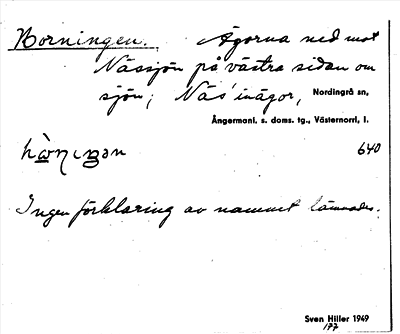 Borningen. Ägorna ned mot
Nässjön på västra sidan om
sjön; Näs' inägor, Nordingrå sn,
Ångermanl. s. doms. tg., Västernorrl. l.
640
Ingen förklaring av namnet lämnades.
Sven Hiller 1949
177